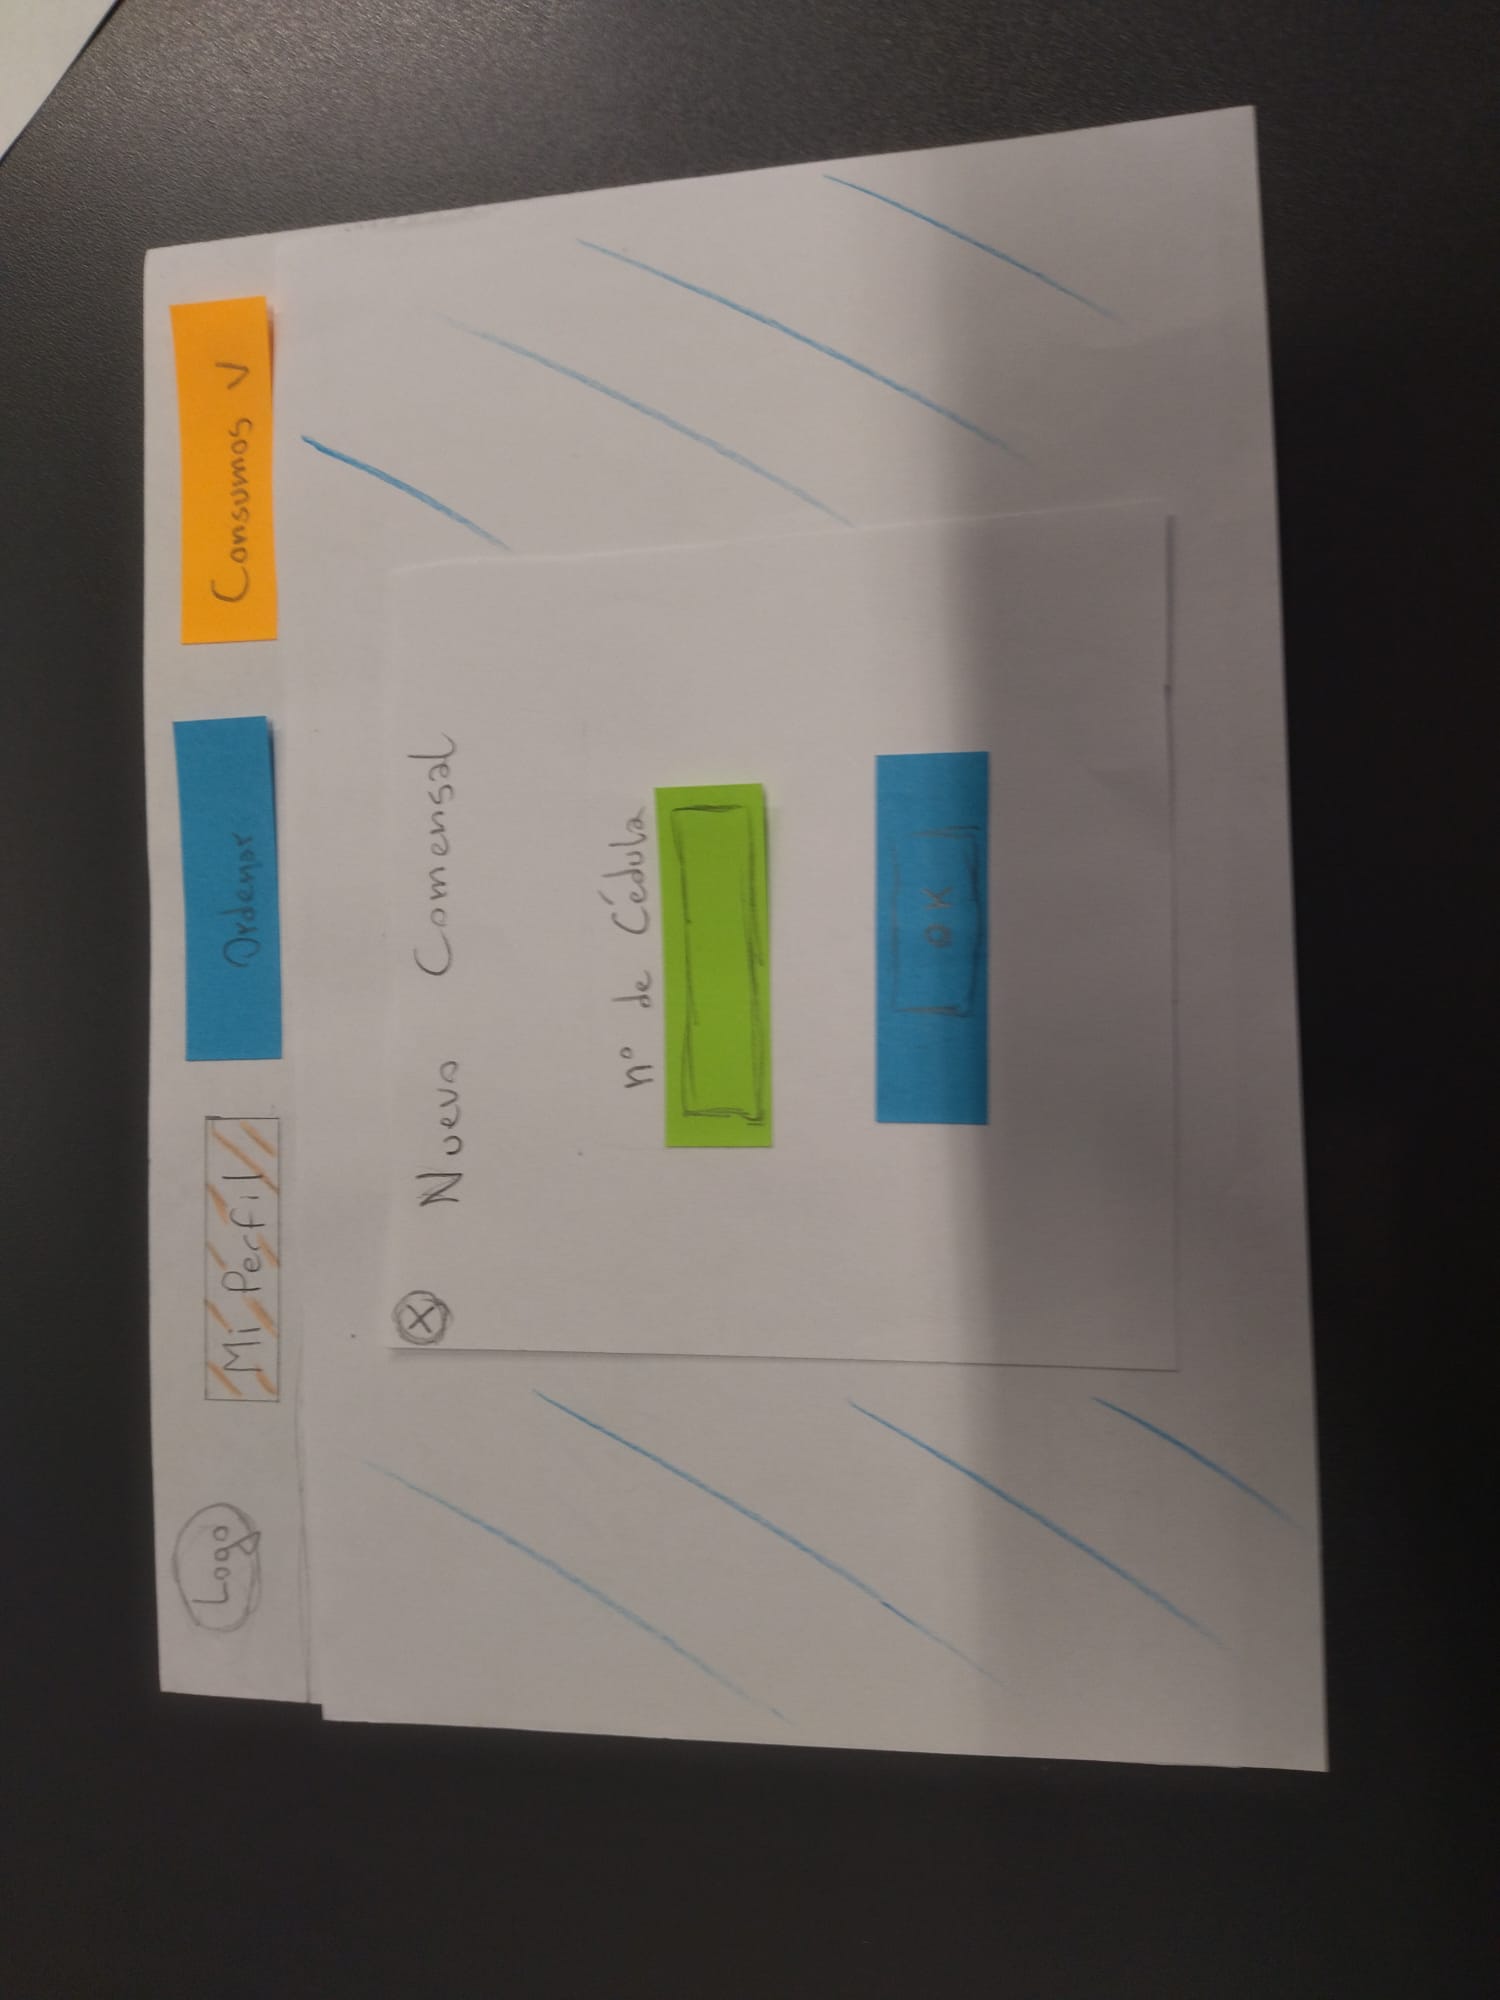 Logo
Mi Perfil
Ordenar
Consumos V
X
Nuevo Comensal
nº de Cédula
OK